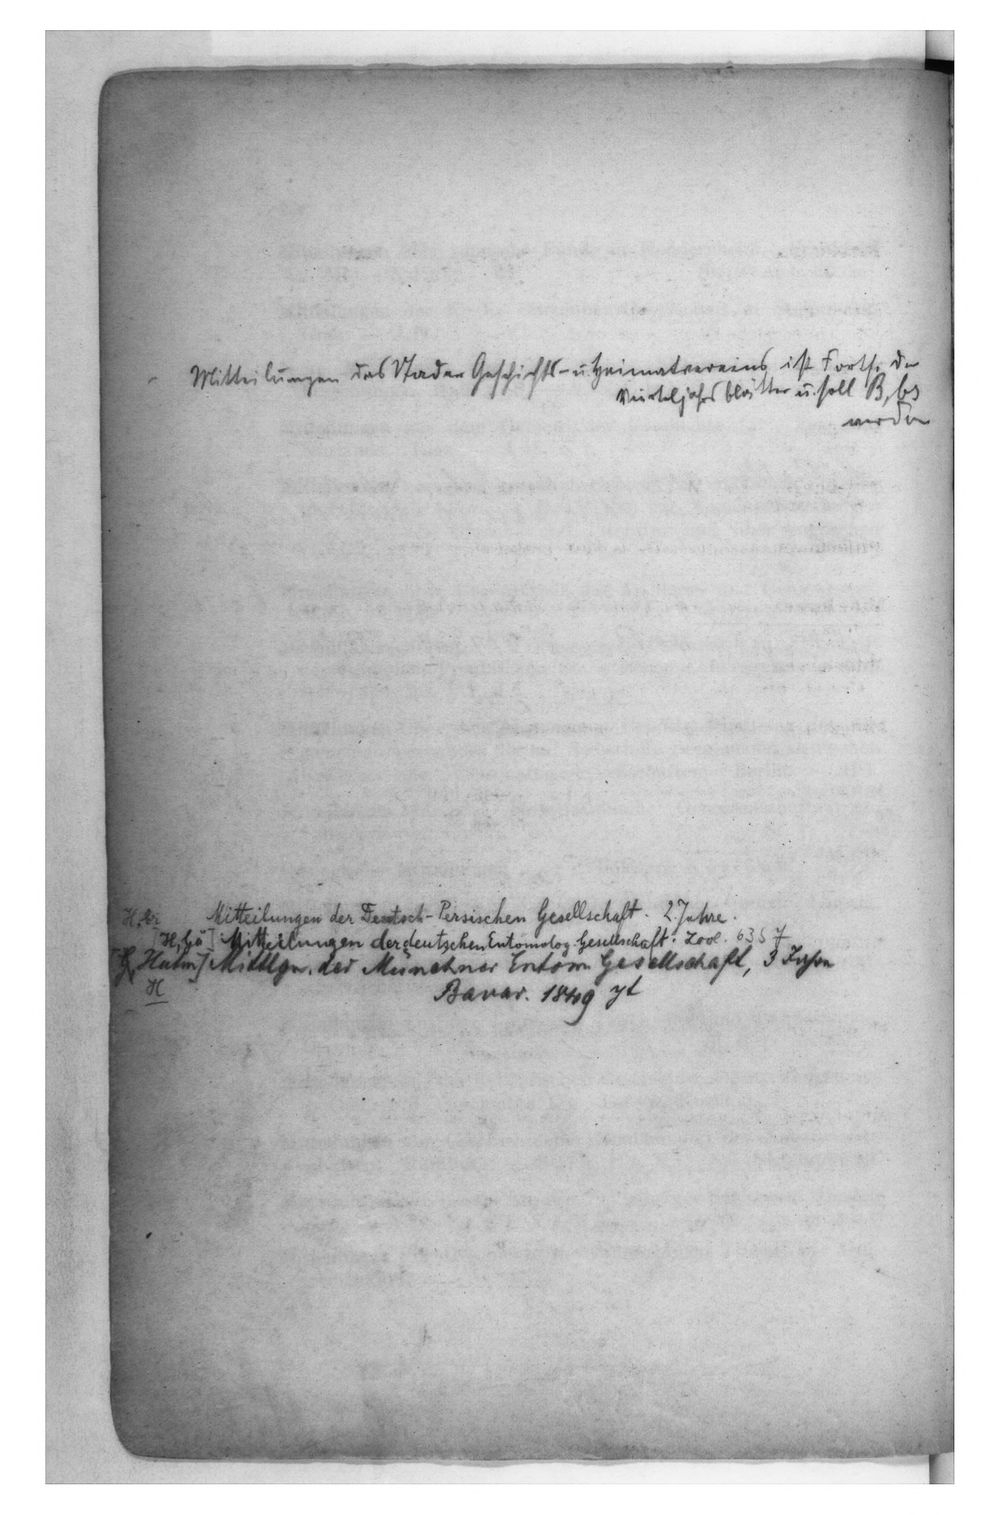 Mitteilungen des Stader Geschichts- u. Heimatvereins ist Forts. der
Vierteljahrsblätter u. soll B, bs
werden
H, br. Mitteilungen der Deutsch-Persischen Gesellschaft. 2. Jahre.
[H, Gö] Mitteilungen der deutschen Entomolog. Gesellschaft: Zool. 6357
Mittlgn. der Münchner Entom Gesellschaft, 3
H Bavar. 1849 yt